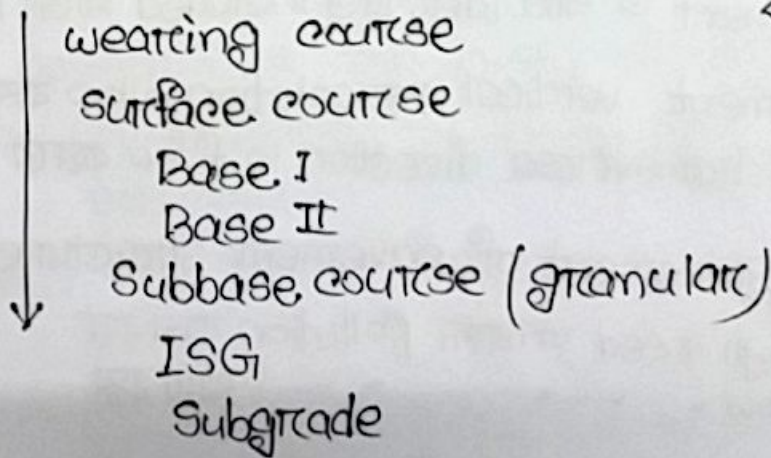 wearing course
surface course
Base I
Base II
Subbase course (granular)
ISG
Subgrade